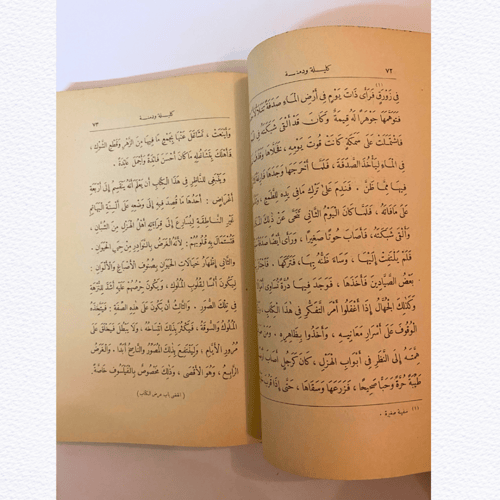 ٧٢ كليلة ودمنة
في زَوْرَقٍ (١) فَرَأَى ذَاتَ يَوْمٍ فِي أَرْضِ الْمَاءِ صَدَفَةً
فَتَوَهَّمَهَا جَوْهَرًا لَهُ قِيمَةٌ وَكَانَ قَدْ أَلْقَى شَبَكَتَهُ فِي
فَاشْتَمَلَتْ عَلَى سَمَكَةٍ كَانَتْ قُوتَ يَوْمِهِ، فَخَلَّاهَا
فِي الْمَاءِ لِيَأْخُذَ الصَّدَفَةَ، فَلَمَّا أَخْرَجَهَا وَجَدَهَا فَارِغَةً
فِيهَا مِمَّا ظَنَّ. فَنَدِمَ عَلَى تَرْكِ مَا فِي يَدِهِ لِلطَّمَعِ،
عَلَى مَا فَاتَهُ. فَلَمَّا كَانَ الْيَوْمُ الثَّانِي تَنَحَّى عَنْ ذَلِكَ
وَأَلْقَى شَبَكَتَهُ، فَأَصَابَ حُوتًا صَغِيرًا، وَرَأَى أَيْضًا
فَلَمْ يَلْتَفِتْ إِلَيْهَا، وَسَاءَ ظَنُّهُ بِهَا، فَتَرَكَهَا.
بَعْضُ الصَّيَّادِينَ فَأَخَذَهَا، فَوَجَدَ فِيهَا دُرَّةً تُسَاوِي
وَكَذَلِكَ الْجُهَّالُ إِذَا أَغْفَلُوا أَمْرَ التَّفَكُّرِ فِي هَذَا الْكِتَابِ،
الْوُقُوفَ عَلَى أَسْرَارِ مَعَانِيهِ، وَأَخَذُوا بِظَاهِرِهِ.
هِمَّتَهُ إِلَى النَّظَرِ فِي أَبْوَابِ الْهَزْلِ، كَانَ كَرَجُلٍ أَصَابَ
طَيِّبَةً حُرَّةً وَحَبًّا صَحِيحًا، فَزَرَعَهَا وَسَقَاهَا، حَتَّى إِذَا قَرُبَ
(١) سفينة صغيرة.
كليلة ودمنة ٧٣
وَأَيْنَعَتْ، تَشَاغَلَ عَنْهَا بِجَمْعِ مَا فِيهَا مِنَ الزَّهْرِ وَقَطْعِ الشَّوْكِ،
فَأَهْلَكَ بِتَشَاغُلِهِ مَا كَانَ أَحْسَنَ فَائِدَةً وَأَجْمَلَ عَائِدَةً.
وَيَنْبَغِي لِلنَّاظِرِ فِي هَذَا الْكِتَابِ أَنْ يَعْلَمَ أَنَّهُ يَنْقَسِمُ إِلَى أَرْبَعَةِ
أَغْرَاضٍ: أَحَدُهَا مَا قُصِدَ فِيهِ إِلَى وَضْعِهِ عَلَى أَلْسِنَةِ الْبَهَائِمِ
غَيْرِ النَّاطِقَةِ لِيُسَارِعَ إِلَى قِرَاءَتِهِ أَهْلُ الْهَزْلِ مِنَ الشُّبَّانِ،
فَتُسْتَمَالَ بِهِ قُلُوبُهُمْ، لِأَنَّهُ الْغَرَضُ بِالنَّوَادِرِ مِنْ حِيَلِ الْحَيَوَانِ.
وَالثَّانِي إِظْهَارُ خَيَالَاتِ الْحَيَوَانِ بِصُنُوفِ الْأَصْبَاغِ وَالْأَلْوَانِ:
لِيَكُونَ أُنْسًا لِقُلُوبِ الْمُلُوكِ، وَيَكُونَ حِرْصُهُمْ عَلَيْهِ أَشَدَّ لِلنُّزْهَةِ
فِي تِلْكَ الصُّوَرِ. وَالثَّالِثُ أَنْ يَكُونَ عَلَى هَذِهِ الصِّفَةِ: فَيَتَّخِذَهُ
الْمُلُوكُ وَالسُّوقَةُ، فَيَكْثُرَ بِذَلِكَ انْتِسَاخُهُ، وَلَا يَبْطُلَ فَيَخْلَقَ عَلَى
مُرُورِ الْأَيَّامِ، وَلِيَنْتَفِعَ بِذَلِكَ الْمُصَوِّرُ وَالنَّاسِخُ أَبَدًا. وَالْغَرَضُ
الرَّابِعُ، وَهُوَ الْأَقْصَى، وَذَلِكَ مَخْصُوصٌ بِالْفَيْلَسُوفِ خَاصَّةً.
(انقضى باب عرض الكتاب)